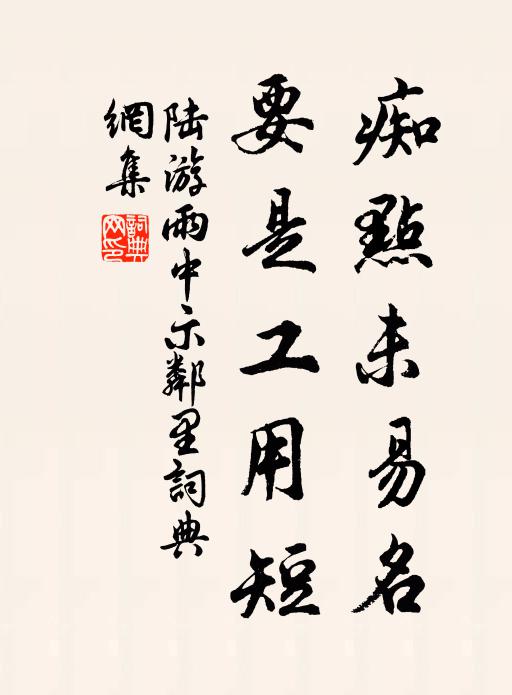 痴點未易名
要是工用短
陆游雨中示鄰里詞典
網集
詞典网印